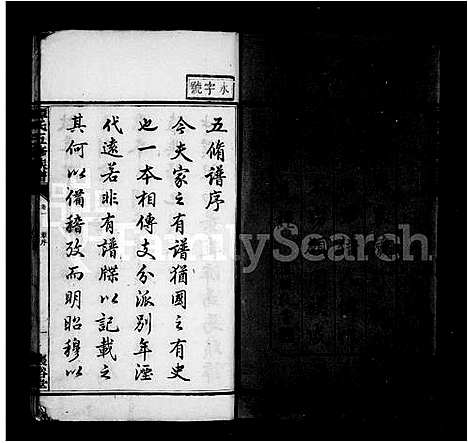 永字號
五脩譜序
今夫家之有譜猶國之有史
也一本相傳支分派別年湮
代遠若非有譜牒以記載之
其何以備稽攷而明昭穆以
卷一
FamilySearch